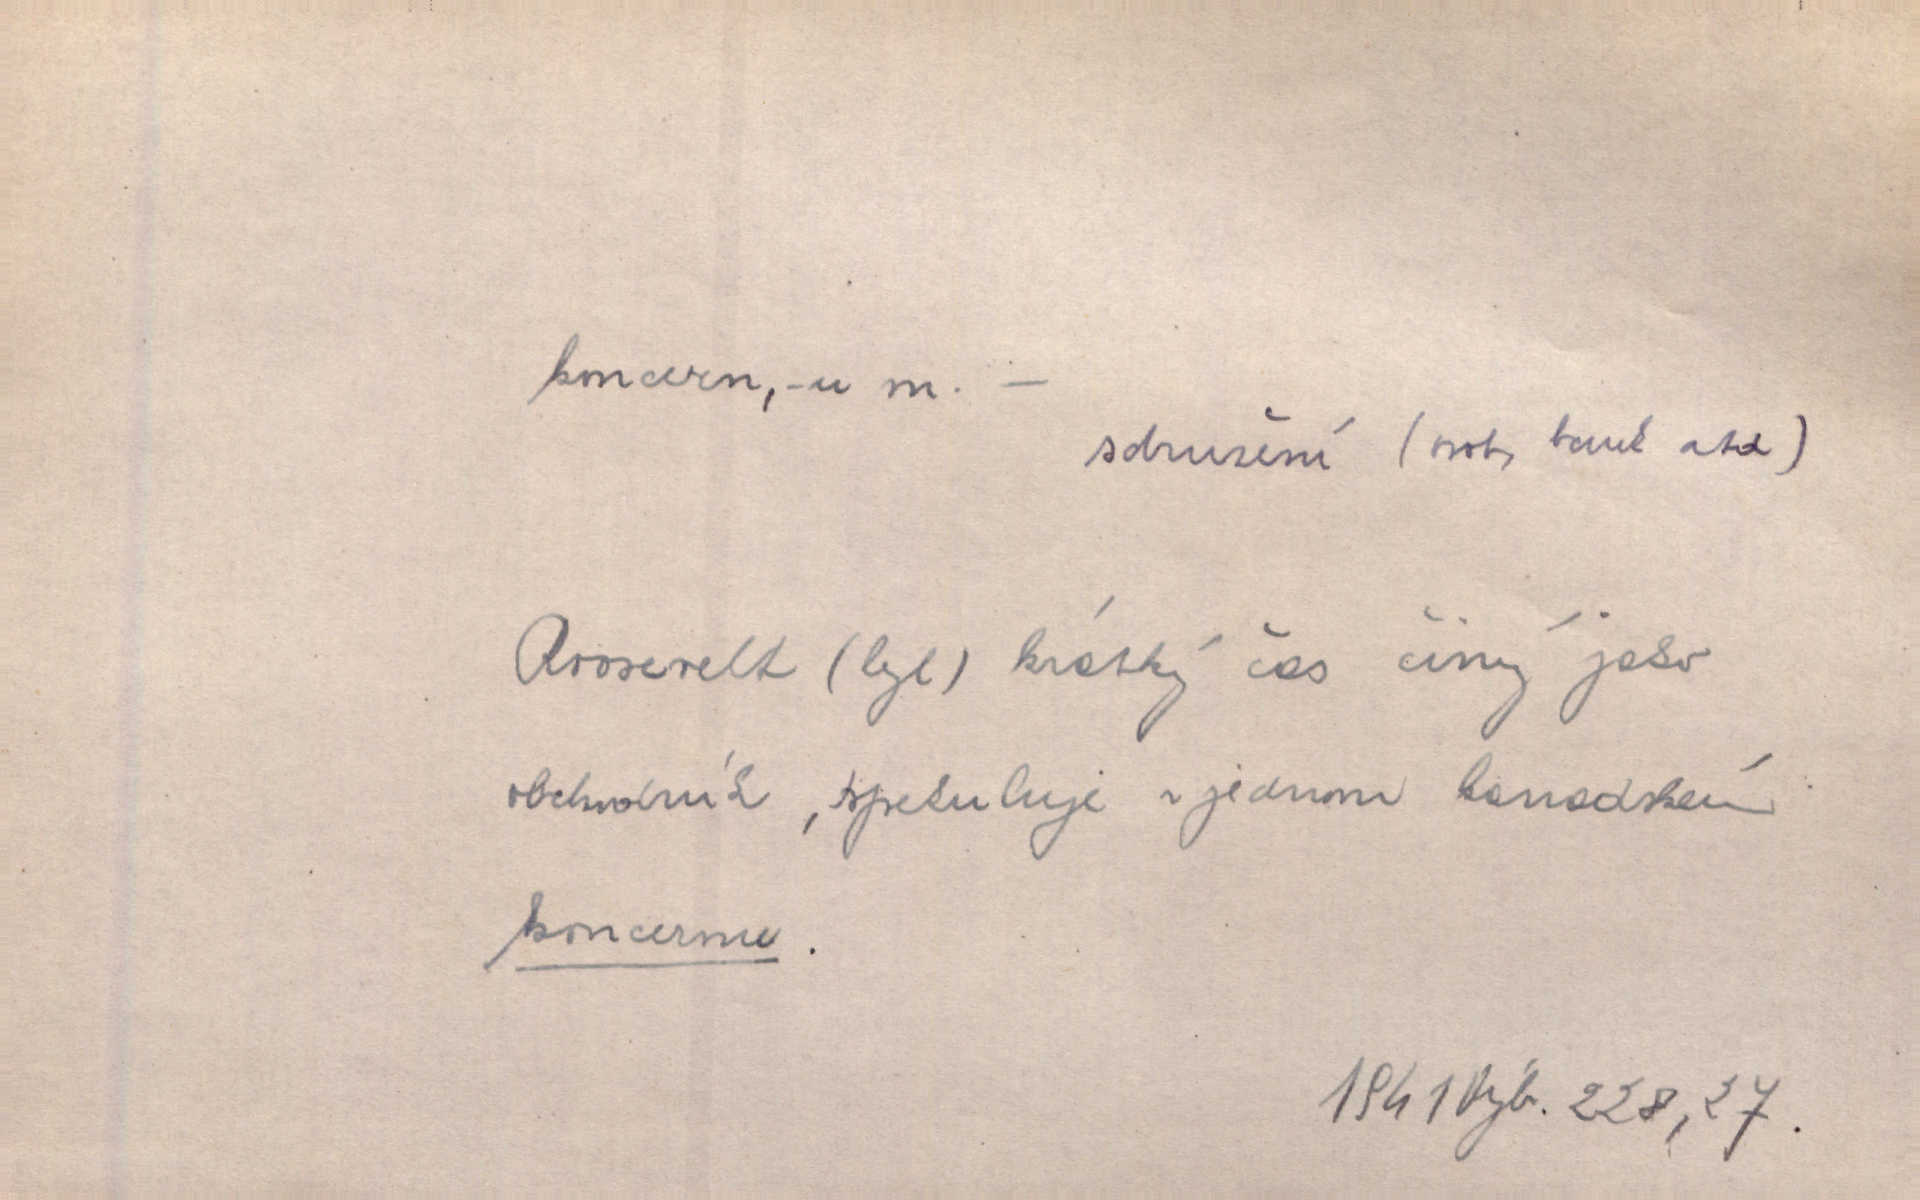 koncern, -u m. —
sdružení (osob, bank atd)
Roosevelt (byl) krátký čas činý jako
obchodník, špekuluje v jednom kanadském
koncerne.
1941 Výb. 228, 27.